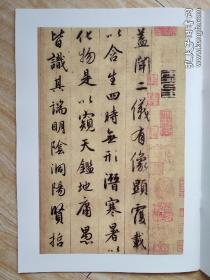 蓋聞二儀有像顯覆載
以含生四時無形潛寒暑以
化物是以窺天鑑地庸愚
皆識其端明陰洞陽賢哲